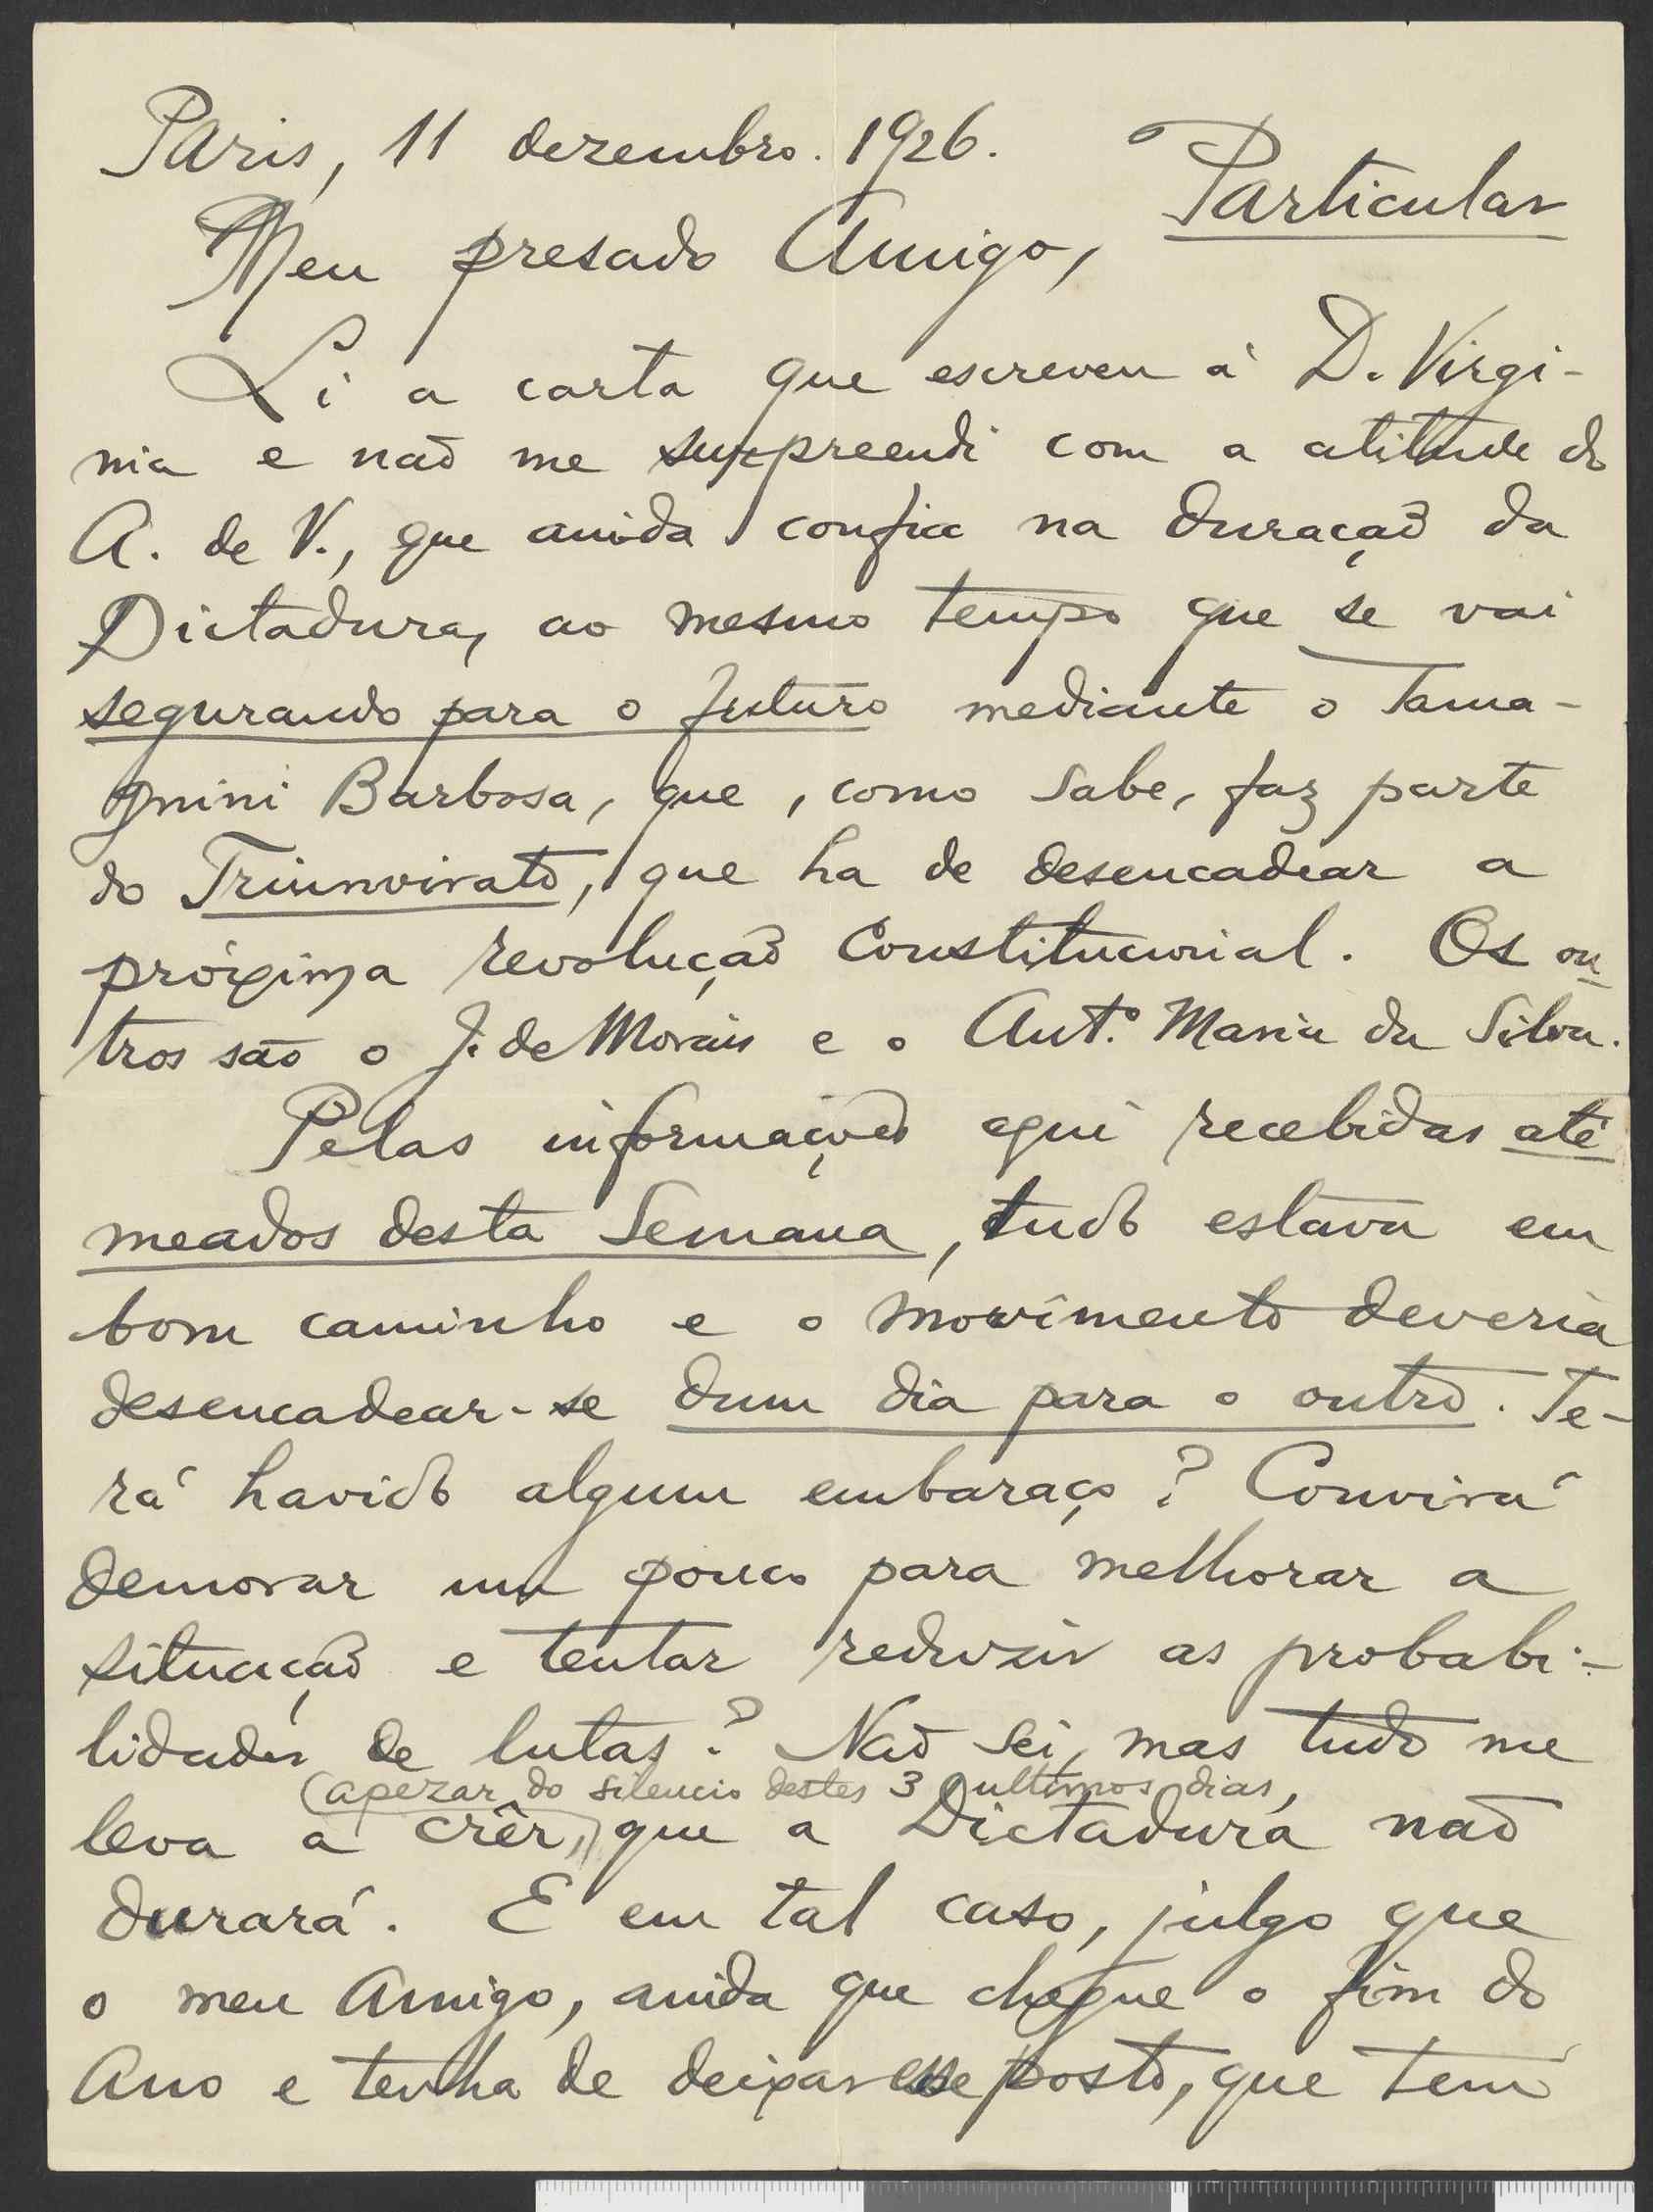 Paris, 11 dezembro. 1926.
Particular
Meu presado Amigo,
Li a carta que escreveu á D. Virgi-
nia e não me surpreendi com a atitude do
A. de V., que ainda confia na duração da
Dictadura, ao mesmo tempo que se vai
segurando para o futuro mediante o Tama-
gnini Barbosa, que, como sabe, faz parte
do Triunvirato, que ha de desencadear a
próxima revolução Constitucional. Os ou
tros são o J. de Morais e o Antº. Maria da Silva.
Pelas informações aqui recebidas até
meados desta semana, tudo estava em
bom caminho e o movimento deveria
desencadear-se dum dia para o outro. Te-
rá havido algum embaraço? Convirá
demorar um pouco para melhorar a
situação e tentar reduzir as probabi-
lidades de lutas? Não sei, mas tudo me
(apezar do silencio destes 3 ultimos dias,
leva a crêr,) que a Dictadura não
durará. E em tal caso, julgo que
o meu Amigo, ainda que chegue o fim do
Ano e tenha de deixar esse posto, que tem